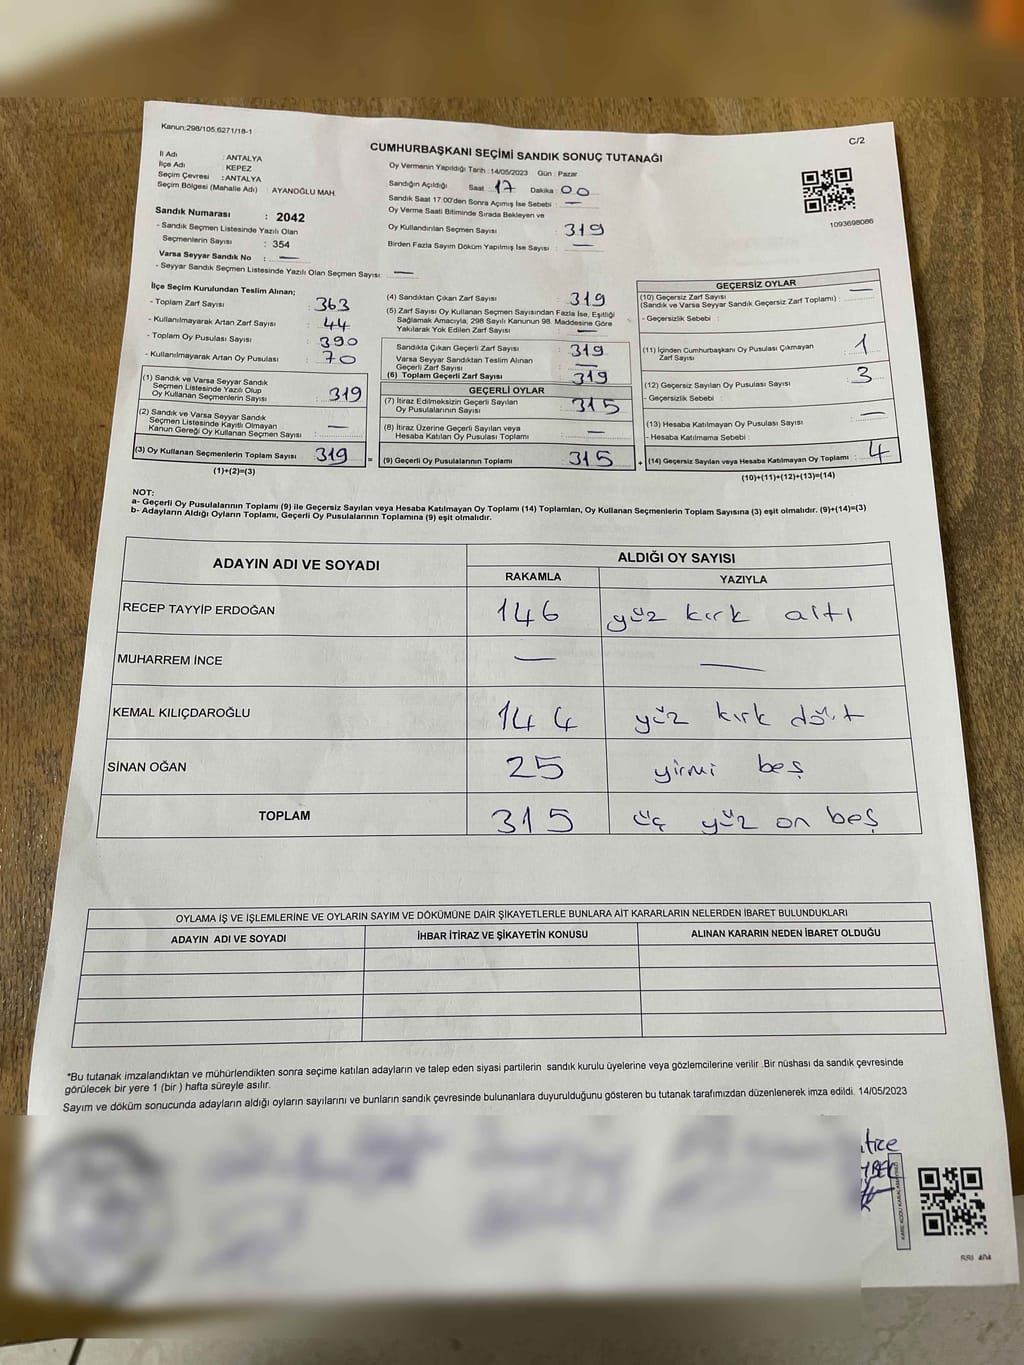 Kanun:298/105,6271/18-1
C/2
CUMHURBAŞKANI SEÇİMİ SANDIK SONUÇ TUTANAĞI
İl Adı : ANTALYA
İlçe Adı : KEPEZ
Seçim Çevresi : ANTALYA
Seçim Bölgesi (Mahalle Adı) : AYANOĞLU MAH.
Sandık Numarası : 2042
- Sandık Seçmen Listesinde Yazılı Olan
Seçmenlerin Sayısı : 354
Varsa Seyyar Sandık No : —
- Seyyar Sandık Seçmen Listesinde Yazılı Olan Seçmen Sayısı: —
Oy Vermenin Yapıldığı Tarih :14/05/2023 Gün : Pazar
Sandığın Açıldığı Saat 17 Dakika : 00
Sandık Saat 17.00'den Sonra Açılmış İse Sebebi : —
Oy Verme Saati Bitiminde Sırada Bekleyen ve
Oy Kullandırılan Seçmen Sayısı : 319
Birden Fazla Sayım Döküm Yapılmış İse Sayısı : —
1093698086
İlçe Seçim Kurulundan Teslim Alınan;
- Toplam Zarf Sayısı : 363
- Kullanılmayarak Artan Zarf Sayısı : 44
- Toplam Oy Pusulası Sayısı : 390
- Kullanılmayarak Artan Oy Pusulası : 70
(1) Sandık ve Varsa Seyyar Sandık
Seçmen Listesinde Yazılı Olup
Oy Kullanan Seçmenlerin Sayısı : 319
(2) Sandık ve Varsa Seyyar Sandık
Seçmen Listesinde Kayıtlı Olmayan
Kanun Gereği Oy Kullanan Seçmen Sayısı : —
(3) Oy Kullanan Seçmenlerin Toplam Sayısı : 319
(1)+(2)=(3)
=
(4) Sandıktan Çıkan Zarf Sayısı : 319
(5) Zarf Sayısı Oy Kullanan Seçmen Sayısından Fazla İse, Eşitliği
Sağlamak Amacıyla; 298 Sayılı Kanunun 98. Maddesine Göre
Yakılarak Yok Edilen Zarf Sayısı : —
Sandıkta Çıkan Geçerli Zarf Sayısı : 319
Varsa Seyyar Sandıktan Teslim Alınan
Geçerli Zarf Sayısı : —
(6) Toplam Geçerli Zarf Sayısı : 319
GEÇERLİ OYLAR
(7) İtiraz Edilmeksizin Geçerli Sayılan
Oy Pusulalarının Sayısı : 315
(8) İtiraz Üzerine Geçerli Sayılan veya
Hesaba Katılan Oy Pusulası Toplamı : —
(9) Geçerli Oy Pusulalarının Toplamı : 315
+
GEÇERSİZ OYLAR
(10) Geçersiz Zarf Sayısı
(Sandık ve Varsa Seyyar Sandık Geçersiz Zarf Toplamı) : —
- Geçersizlik Sebebi :
(11) İçinden Cumhurbaşkanı Oy Pusulası Çıkmayan
Zarf Sayısı : 1
(12) Geçersiz Sayılan Oy Pusulası Sayısı : 3
- Geçersizlik Sebebi :
(13) Hesaba Katılmayan Oy Pusulası Sayısı : —
- Hesaba Katılmama Sebebi :
(14) Geçersiz Sayılan veya Hesaba Katılmayan Oy Toplamı : 4
(10)+(11)+(12)+(13)=(14)
NOT:
a- Geçerli Oy Pusulalarının Toplamı (9) ile Geçersiz Sayılan veya Hesaba Katılmayan Oy Toplamı (14) Toplamları, Oy Kullanan Seçmenlerin Toplam Sayısına (3) eşit olmalıdır. (9)+(14)=(3)
b- Adayların Aldığı Oyların Toplamı, Geçerli Oy Pusulalarının Toplamına (9) eşit olmalıdır.
ADAYIN ADI VE SOYADI ALDIĞI OY SAYISI
RAKAMLA YAZIYLA
RECEP TAYYİP ERDOĞAN 146 yüz kırk altı
MUHARREM İNCE — —
KEMAL KILIÇDAROĞLU 144 yüz kırk dört
SİNAN OĞAN 25 yirmi beş
TOPLAM 315 üç yüz on beş
OYLAMA İŞ VE İŞLEMLERİNE VE OYLARIN SAYIM VE DÖKÜMÜNE DAİR ŞİKAYETLERLE BUNLARA AİT KARARLARIN NELERDEN İBARET BULUNDUKLARI
ADAYIN ADI VE SOYADI İHBAR İTİRAZ VE ŞİKAYETİN KONUSU ALINAN KARARIN NEDEN İBARET OLDUĞU
*Bu tutanak imzalandıktan ve mühürlendikten sonra seçime katılan adayların ve talep eden siyasi partilerin sandık kurulu üyelerine veya gözlemcilerine verilir .Bir nüshası da sandık çevresinde
görülecek bir yere 1 (bir ) hafta süreyle asılır.
Sayım ve döküm sonucunda adayların aldığı oyların sayılarını ve bunların sandık çevresinde bulunanlara duyurulduğunu gösteren bu tutanak tarafımızdan düzenlenerek imza edildi. 14/05/2023